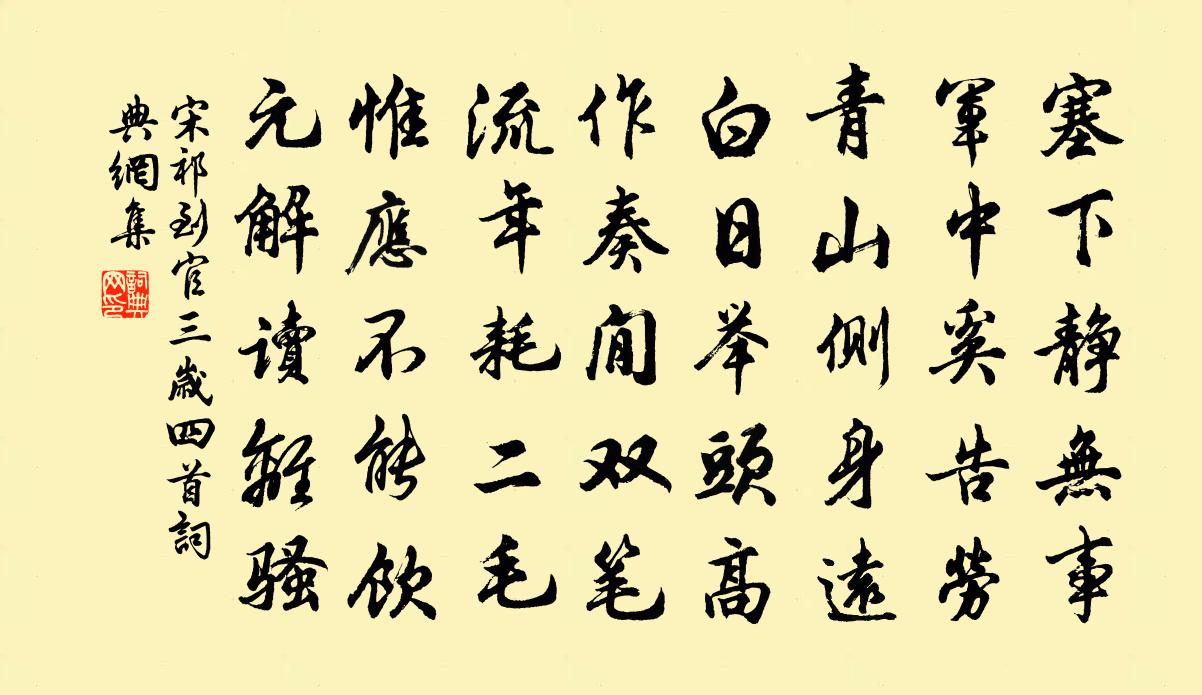 塞下靜無事
軍中奚告勞
青山側身遠
白日举頭高
作奏閒双笔
流年耗二毛
惟應不能飲
元解讀離騷
宋祁到官三歲四首詞
典網集
詞典
网印